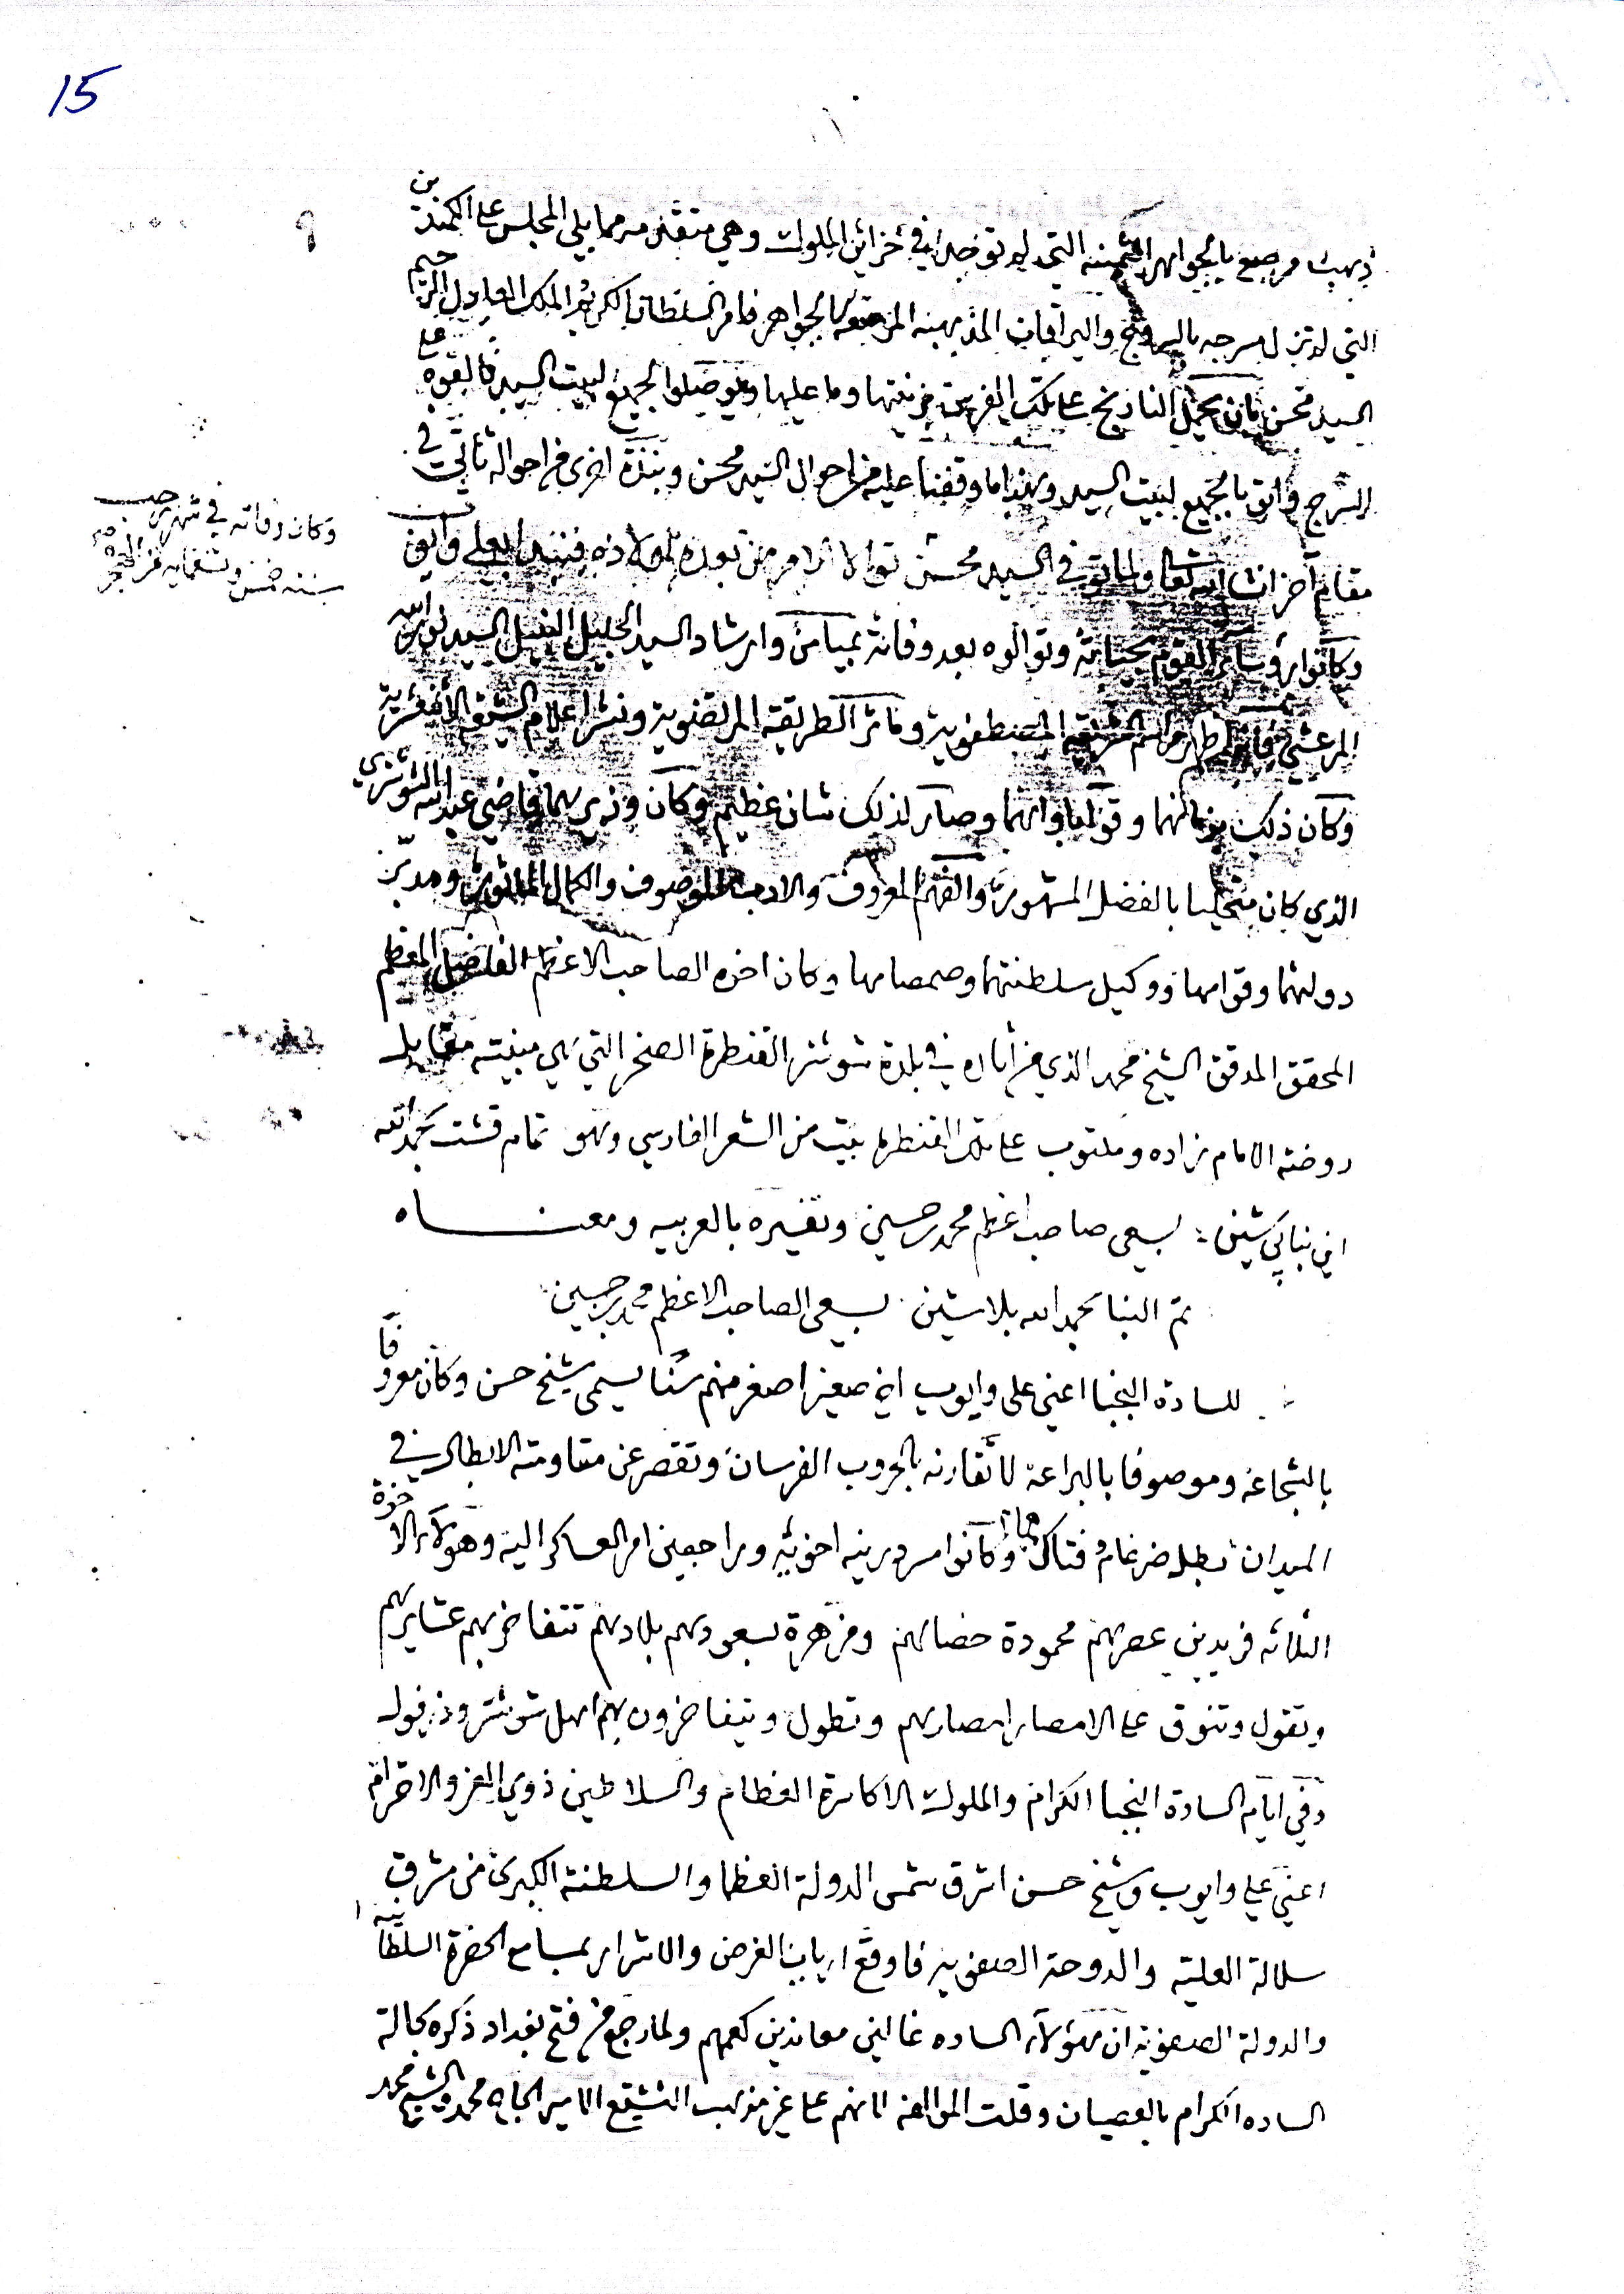 15
٩
ذهب مرصع بالجواهر الثمينه التي لم توجد في خزائن الملوك وهي متقنه مما يلي المجلس على الكمندين
التي لم تزل مسرجه بالسروج واليراقات المذهبه المرصعه بالجواهر فامر السلطان الكريم الملك العادل الرحيم
السيد محسن بان يحمل النارنج على تلك الفرس بزينتها وما عليها ويوصلوا الجميع لبيت السيد فالقوه على
السرج واتو بالجميع لبيت السيد وهذا ما وقفنا عليه من احوال السيد محسن ونبذة اخرى من احواله تأتي في
مقام آخر انشا الله تعا ولما توفي السيد محسن تولا الامر من بعده اولاده السيد علي وايوب
وكان وفاته في شهر رجب
سنه خمس وتسعمايه من الهجره
وكانوا رؤساء القوم بحياته وتوالوه بعد وفاته بميامن وارشاد السيد الجليل النبيل السيد نور الله
المرعشي مراسم الشريعه المصطفويه وماثر الطريقه المرتضويه ونشر اعلام الشيعه الاثنعشريه
وكان ذلك بزمانهما وصار لذلك شان عظيم وكان وزيرهما قاضي عبد الله الشوشتري
الذي كان متحليا بالفضل المشهور والفهم المعروف والادب الموصوف والكمال الماثور ومدبر
دولتهما وقوامها ووكيل سلطنتهما وصمصامها وكان اخوه الصاحب الاعظم الفاضل المعظم
المحقق المدقق الشيخ محمد الذي من آثاره في بلدة شوشتر القنطرة الصخر التي هي مبنيته مقابل
روضه الامام زاده ومكتوب على تلك القنطره بيت من الشعر الفارسي وهو تمام قشت بحمد الله
اين بناي شين : بسعي صاحب اعظم محمد حسين وتفسيره بالعربيه ومعناه
تم البنا بحمد الله بلاشين بسعي الصاحب الاعظم محمد حسين
للسادة النجبا اعني علي وايوب اخ صغير اصغر منهم سنا يسمى شيخ حسن وكان معروفا
بالشجاعه وموصوفا بالبراعة لا تقارنه بالحروب الفرسان وتقصر عن مقاومته الابطال في
الميدان بطل ضرغام فتاك همام وكانوا مسرورين اخويه وراجعين امر العساكر اليه وهولاء الاخوة
الثلاثه فريدين عصرهم محمودة خصالهم ومزهرة بسعودهم بلادهم تتفاخر بهم عشايرهم
وتقول وتنوق على الامصار امصارهم وتطول ويتفاخرون بهم اهل شوشتر وذزفول
وفي ايام السادة النجبا الكرام والملوك الاكاسرة العظام والسلاطين ذوي العز والاحترام
اعني علي وايوب وشيخ حسن اشرق شمس الدولة العظما والسلطنة الكبرى من مشرق
سلالة العليه والدوحة الصفويه فاوقع ارباب الغرض والاشرار بمسامع الحضرة السلطانيه
والدولة الصفويه ان هؤلاء الساده غالين معاندين كعمهم ولما رجع من فتح بغداد ذكره بحالة
الساده الكرام بالعصيان وقلت الموالفه لانهم على غير مذهب التشيع الامير الحاج محمد والشيخ محمد